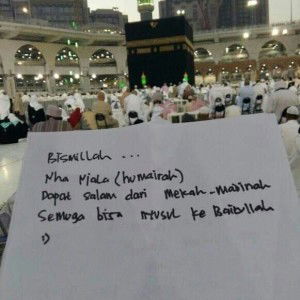 Bismillah ...
Nha Njala (humairah)
Dapat salam dari Mekah-Madinah
Semuga bisa nyusul ke Baitullah
:)